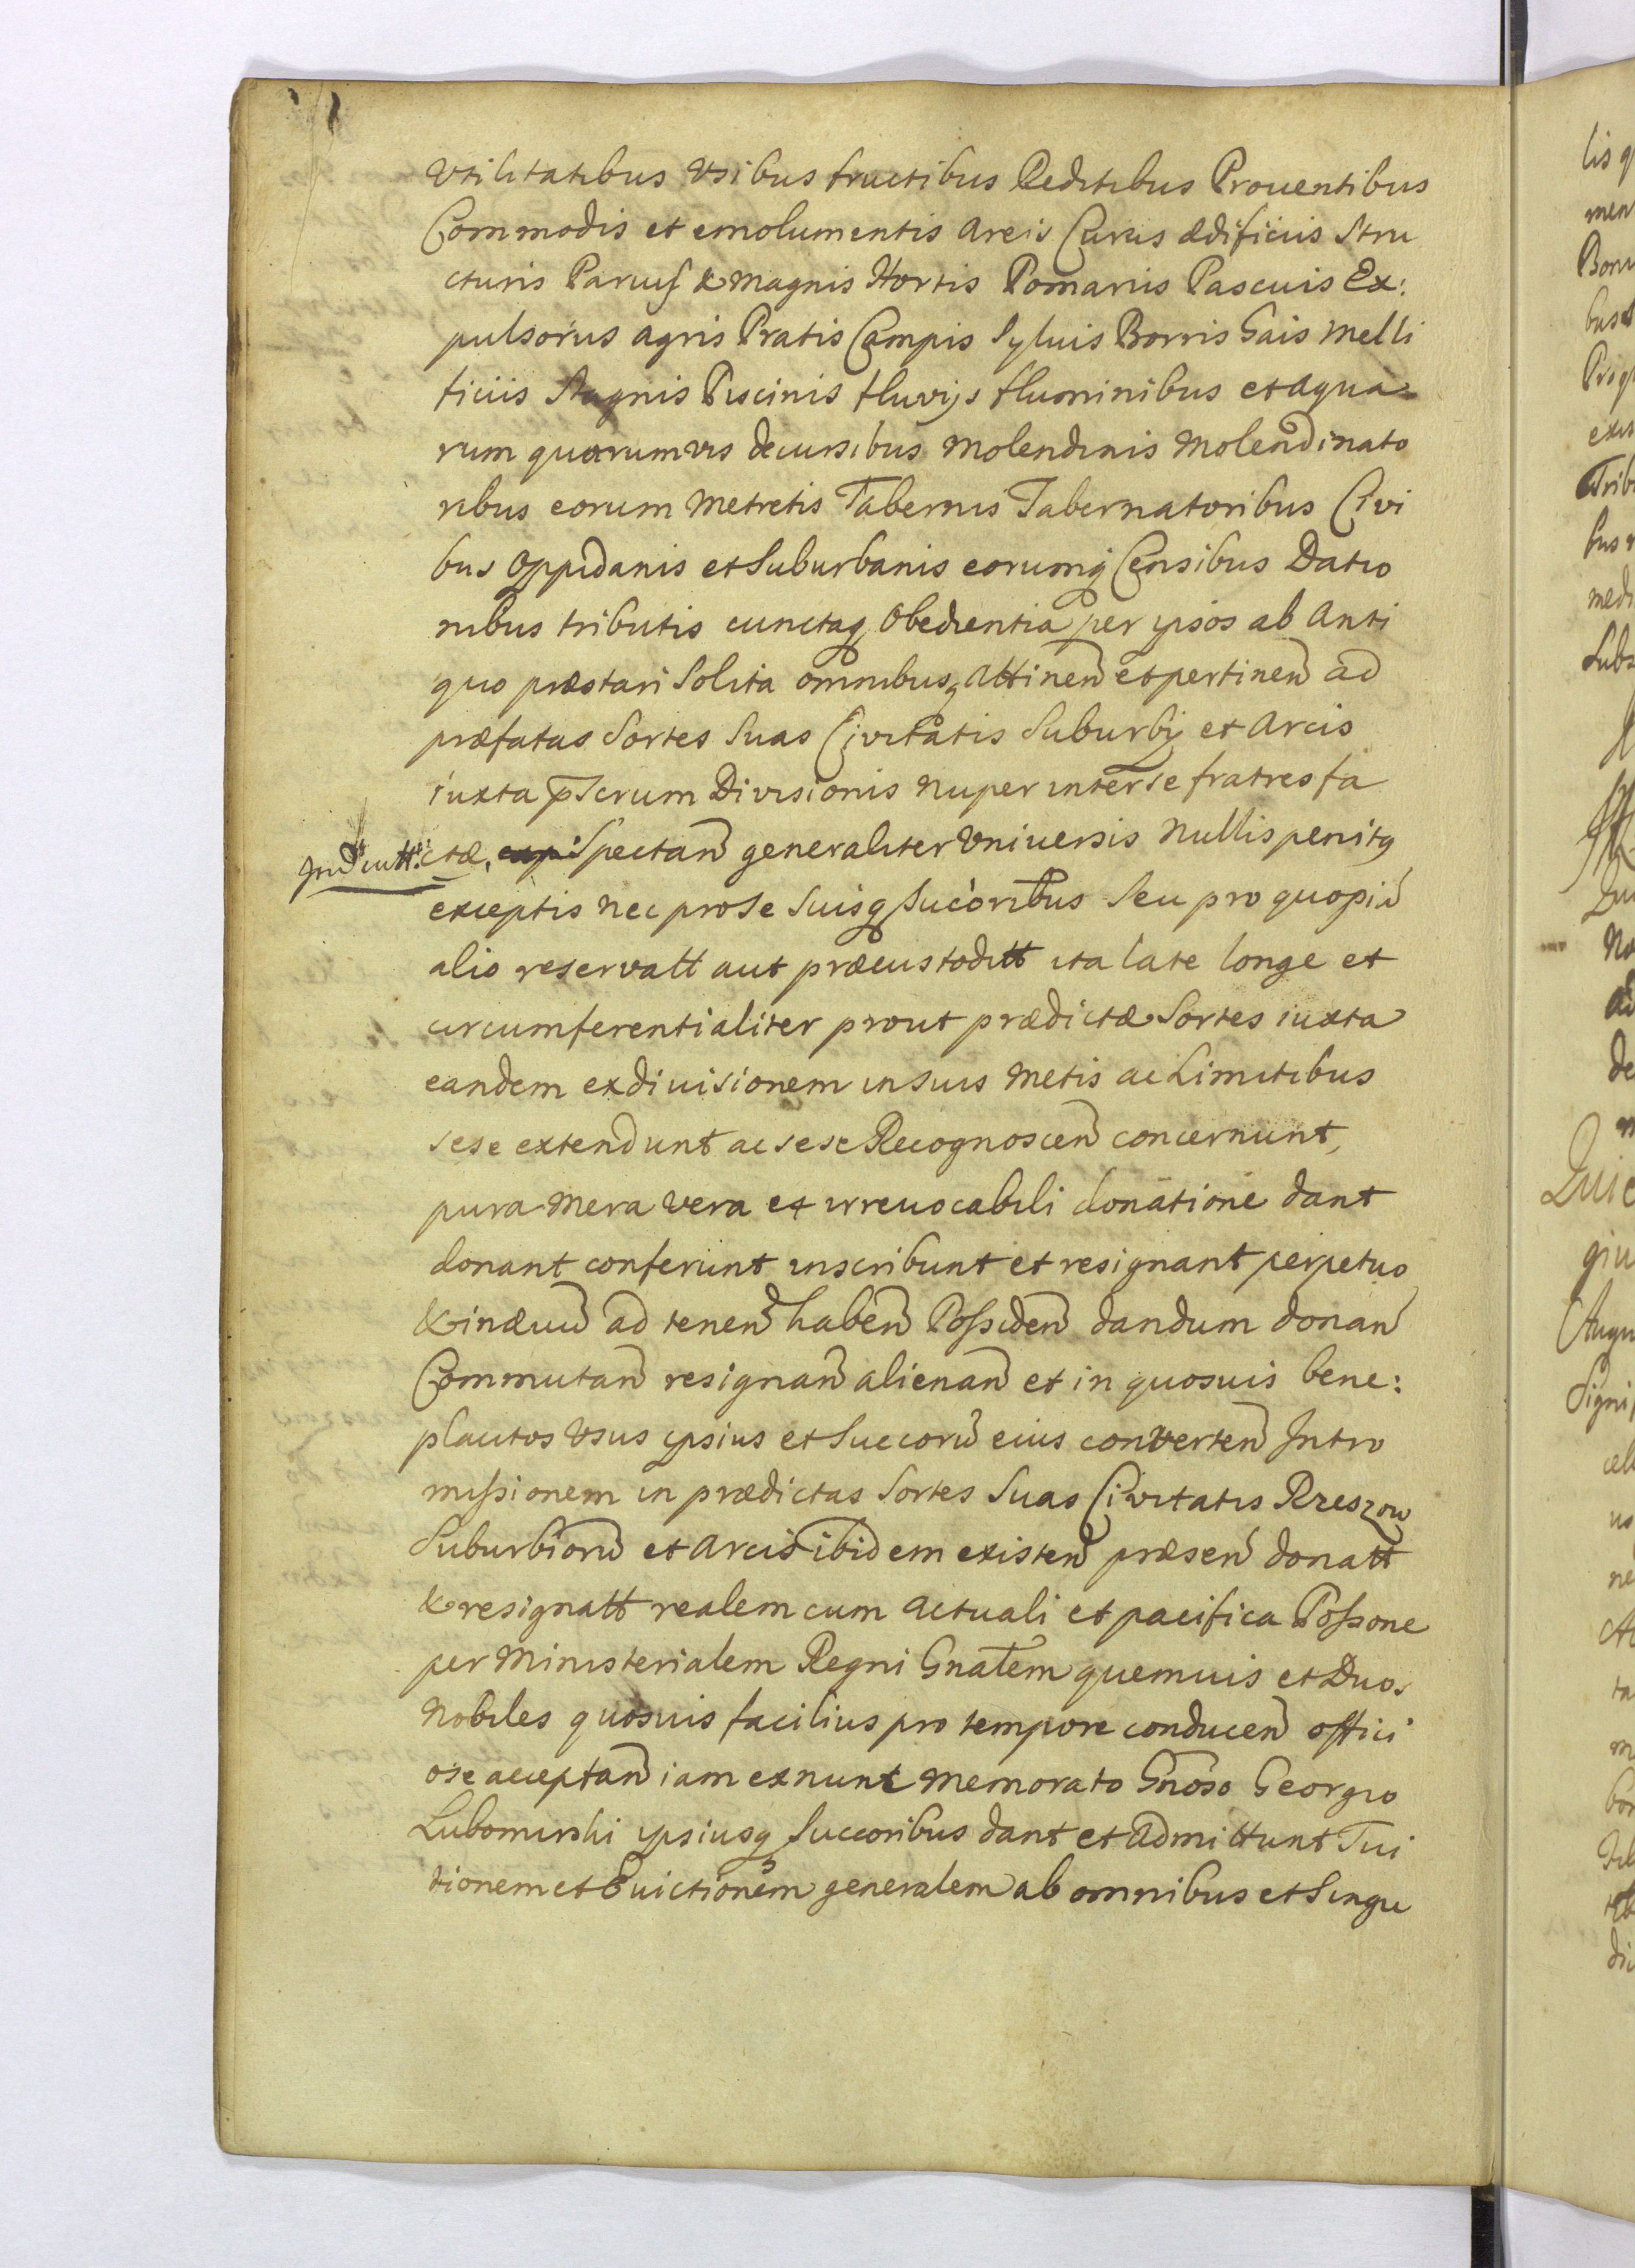 Vtilitatibus Vsibus fructibus Reditibus Prouentibus
Commodis et emolumentis areis Curiis ædificiis Stru
cturis Paruis & magnis Hortis Pomariis Pascuis Ex:
pulsoriis agris Pratis Campis Syluis Borris Gais Melli
ficiis Stagnis Piscinis fluvijs fluminibus et aqua
rum quarumvis decursibus Molendinis Molendinato
ribus eorum Metretis Tabernis Tabernatoribus Civi
bus Oppidanis et Suburbanis eorumq Censibus Datio
nibus tributis cunctaq Obedientia per ipsos ab Anti
quo præstari Solita omnibusq Attinen et pertinen ad
præfatas Sortes Suas Civitatis Suburbij et Arcis
iuxta Divisionis nuper inter se fratres fa
ctæ, Spectan generaliter Vniuersis Nullis penitq
exceptis nec pro Se Suisq Succoribus Seu pro quopiã
alio reservatt aut præcustoditt ita late longe et
circumferentialiter prout prædictæ Sortes iuxta
eandem exdiuisionem in suis Metis ac Limitibus
sese extendunt ac sese Recognoscen concernunt,
pura Mera Vera et irreuocabili donatione dant
donant conferunt inscribunt et resignant perpetuo
& in æuũ ad tenen haben Possiden dandum donan
Commutan resignan alienan et in quosuis bene:
placitos Vsus ipsius et Succorũ eius converten Intro
missionem in prædictas Sortes Suas Civitatis Rzeszow
Suburbiorũ et Arcis ibidem existen præsen donatt
& resignatt realem cum actuali et pacifica Possone
per Ministerialem Regni Gnalem quemuis et Duos
Nobiles quosuis facilius pro tempore conducen offici
ose acceptan iam ex nunc Memorato Gnoso Georgio
Lubomirski ipsiusq Succoribus dant et Admittunt Tui
tionem et Euictionem generalem ab omnibus et Singu